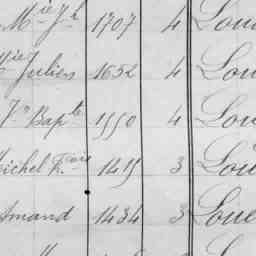 Mie Jh 1707 4 Lou
Julien 1652 4 Lou
Jn Bapte 1550 4 Lou
Michel Fcois 1419 3 Lou
Amand 1434 3 Loue